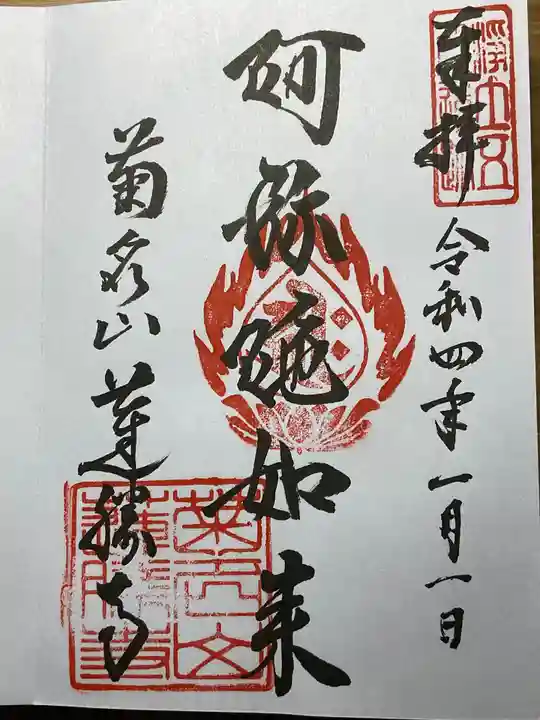 奉拝 令和四年一月一日
阿弥陀如来
菊名山 蓮勝寺